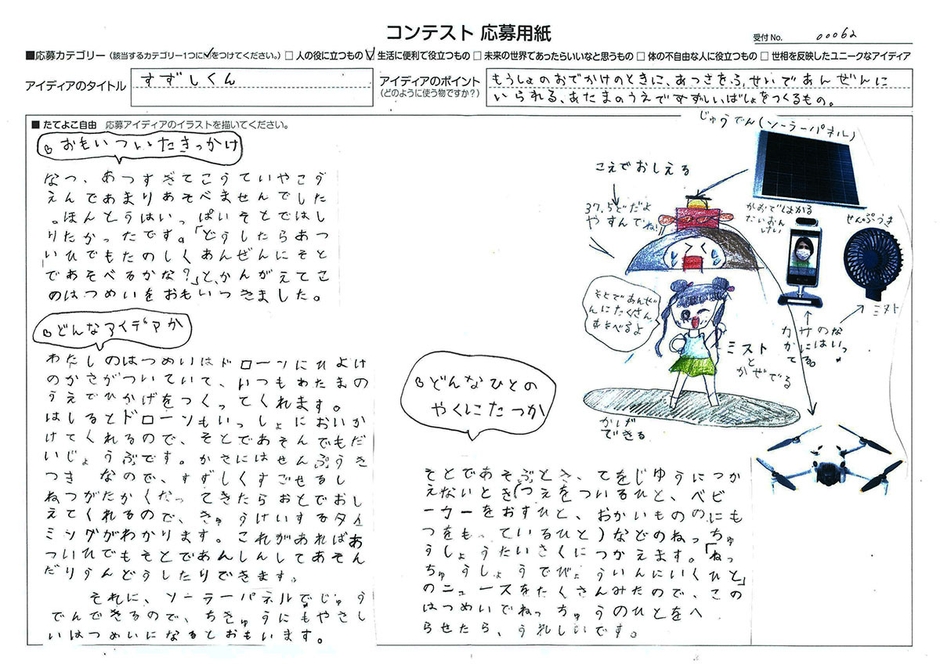 コンテスト 応募用紙
受付No. 00062
■応募カテゴリー (該当するカテゴリー1つに✓をつけてください。) □人の役に立つもの ☑生活に便利で役立つもの □未来の世界であったらいいなと思うもの □体の不自由な人に役立つもの □世相を反映したユニークなアイデア
アイディアのタイトル
すずしくん
アイディアのポイント
(どのように使う物ですか?)
もうしょのおでかけのときに、あつさをふせいであんぜんに
いられる、あたまのうえですずしいばしょをつくるもの。
■たてよこ自由 応募アイディアのイラストを描いてください。
おもいついたきっかけ
なつ、あつすぎてこうていやこう
えんであまりあそべませんでした
。ほんとうはいっぱいそとではし
りたかったです。「どうしたらあつ
いひでもたのしくあんぜんにそと
であそべるかな?」と、かんがえてこ
のはつめいをおもいつきました。
どんなアイデアか
わたしのはつめいはドローンにひよけ
のかさがついていて、いつもあたまの
うえでひかげをつくってくれます。
はしるとドローンもいっしょにおいか
けてくれるので、そとであそんでもだ
いじょうぶです。かさにはせんぷうき
つき なので、すずしくすごせるし
ねつがたかくなってきたらおとでおし
えてくれるので、きゅうけいするタイ
ミングがわかります。これがあればあ
ついひでもそとであんしんしてあそん
だりうんどうしたりできます。
それに、ソーラーパネルでじゅう
でんできるので、ちきゅうにもやさし
いはつめいになるとおもいます。
どんなひとの
やくにたつか
そとであそぶとき、てをじゆうにつか
えないとき(つえをついるひと、ベビ
ーカーをおすひと、おかいもののにも
つをもっているひと)などのねっちゅ
うしょうたいさくにつかえます。「ねっ
ちゅうしょうでびょういんにいくひと」
のニュースをたくさんみたので、この
はつめいでねっちゅうのひとをへ
らせたら、うれしいです。
じゅうでん(ソーラーパネル)
こえでおしえる
37.5どだよ
やすんでね!
かおではかる
たいおん
けい
せんぷうき
ミスト
そとであんぜ
んにたくさん
あそべるよ
ミスト
と
かぜでる
かさのな
かにはいっ
てる。
かげ
できる